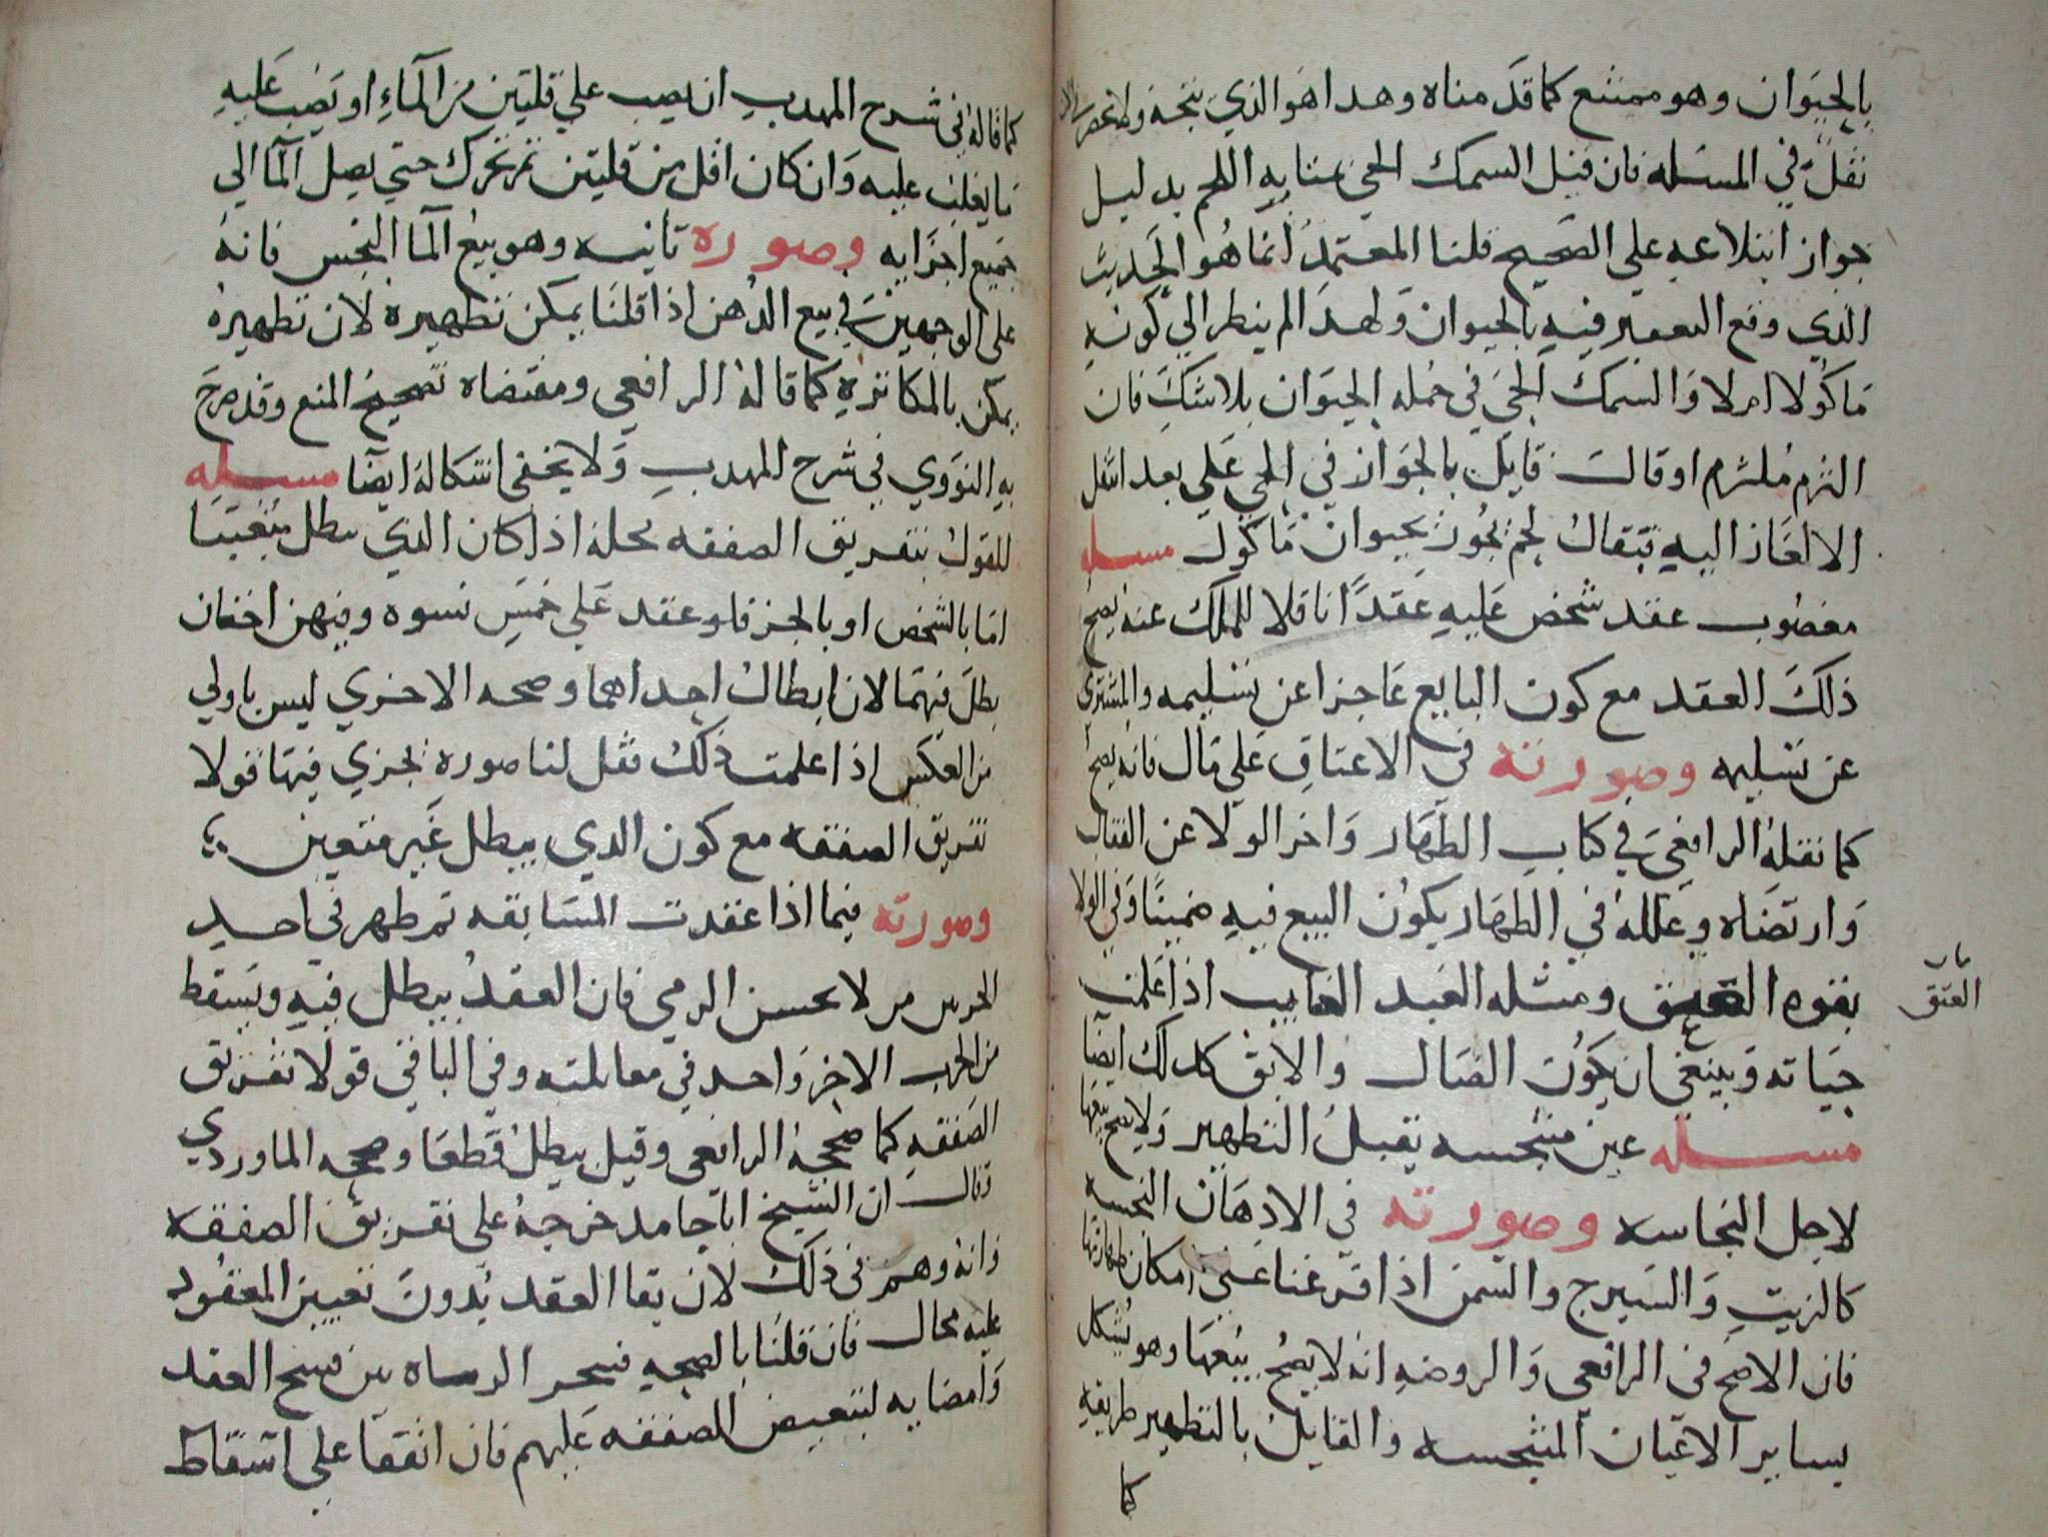 بالحيوان وهو ممتنع كما قدمناه وهدا هو الذي يتجه ولا نحضر
نقل في المسئله فان قيل السمك الحي بمثابه اللحم بدليل
جواز ابتلاعه علي الصحيح قلنا المعتمد انما هو الحديث
الدي وقع التعبير فيه بالحيوان ولهدا لم ينظر الي كونه
ماكولا ام لا والسمك الحي في جمله الحيوان بلا شك فان
التزم ملتزم او قال قايل بالجواز في الحي علي بعد انتقل
الالغاز اليه فيقال لحم يجوز بحيوان ماكول مسله
مغصوب عقد شخص عليه عقدا ناقلا للملك عنه يصح
ذلك العقد مع كون البايع عاجزا عن تسليمه والمشتري
عن تسليمه وصورته في الاعتاق علي مال فانه يصح
كما نقله الرافعي في كتاب الظهار واخر الولا عن القفال
وارتضاه وعلله في الظهار بكون البيع فيه ضمينا وفي الولا
بقوه العتق ومثله العبد الغايب اذا علمت
حياته وينبغي ان يكون الضال والابق كدلك ايضا
مسله عين متنجسه يقبل التطهير ولا يصح بيعها
لاجل النجاسه وصورته في الادهان النجسه
كالزيت والشيرج والسمن اذا فرعنا علي امكان طهارتها
فان الاصح في الرافعي والروضه انه لا يصح بيعها وهو يشكل
بساير الاعيان المتنجسه والقايل بالتطهير طريقه
كما
باب
العتق
كما قاله في شرح المهدب ان يصب علي قلتين من الماء او يصب عليه
ما يغلب عليه وان كان اقل من قلتين ثم تحرك حتي يصل الما الي
جميع اجزايه وصوره تانيه وهو بيع الما النجس فانه
علي الوجهين في بيع الدهن اذا قلنا يمكن تطهيره لان تطهيره
يمكن بالمكاثره كما قاله الرافعي ومقتضاه تصحيح المنع وقد صرح
به النووي في شرح المهدب ولا يخفي اشكاله ايضا مسله
للقول بتفريق الصفقه محله اذا كان الدي يبطل متعينا
اما بالشخص او بالجز فلو عقد علي خمس نسوه وفيهن اختان
بطل فيهما لان ابطال احداهما وصحه الاخري ليس باولي
من العكس اذا علمت ذلك فقل لنا صوره نجري فيها قولا
تفريق الصفقه مع كون الدي يبطل غير متعين
وصورته فيما اذا عقدت المسابقه ثم ظهر في احد
الحزبين من لا يحسن الرمي فان العقد يبطل فيه ويسقط
من الحزب الاخر واحد في مقابلته وفي الباقي قولا تفريق
الصفقه كما صححه الرافعي وقيل يبطل قطعا وصححه الماوردي
وقال ان الشيخ ابا حامد خرجه علي تفريق الصفقه
وانه وهم في ذلك لان بقا العقد بدون تعيين المعقود
عليه محال فان قلنا بالصحه فيتخير الرماه بين فسخ العقد
وامضايه لتبعيض الصفقه عليهم فان اتفقا علي اسقاط